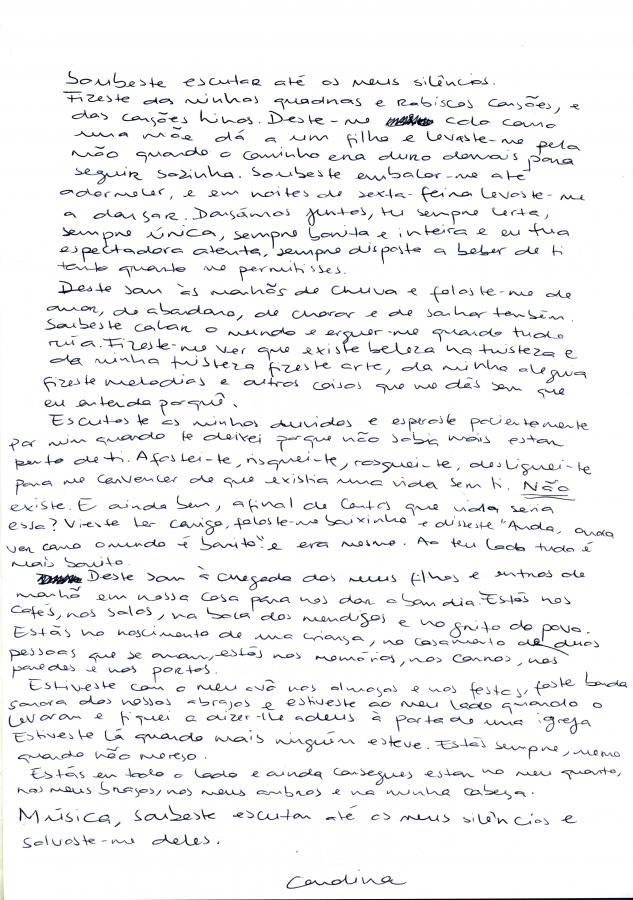 Soubeste escutar até os meus silêncios.
Fizeste das minhas quadras e rabiscos canções, e
das canções hinos. Deste-me colo como
uma mãe dá a um filho e levaste-me pela
mão quando o caminho era duro demais para
seguir sozinha. Soubeste embalar-me até
adormecer, e em noites de sexta-feira levaste-me
a dançar. Dançámos juntos, tu sempre certa,
sempre única, sempre bonita e inteira e eu tua
espectadora atenta, sempre disposta a beber de ti
tanto quanto me permitisses.
Deste som às manhãs de chuva e falaste-me de
amor, de abandono, de chorar e de sonhar também.
Soubeste calar o mundo e erguer-me quando tudo
ruía. Fizeste-me ver que existe beleza na tristeza e
da minha tristeza fizeste arte, da minha alegria
fizeste melodias e outras coisas que me dás sem que
eu entenda porquê.
Escutaste as minhas dúvidas e esperaste pacientemente
por mim quando te deixei porque não sabia mais estar
perto de ti. Afastei-te, risquei-te, rasguei-te, desliguei-te
para me convencer de que existia uma vida sem ti. Não
existe. E ainda bem, afinal de contas que vida seria
essa? Vieste ter comigo, falaste-me baixinho e disseste "Anda, anda
ver como o mundo é bonito" e era mesmo. Ao teu lado tudo é
mais bonito.
Deste som à chegada dos meus filhos e entras de
manhã em nossa casa para nos dar o bom dia. Estás nos
cafés, nas salas, na boca dos mendigos e no grito do povo.
Estás no nascimento de uma criança, no casamento de duas
pessoas que se amam, estás nas memórias, nos carros, nas
paredes e nas portas.
Estiveste com o meu avô nos almoços e nas festas, foste banda
sonora dos nossos abraços e estiveste ao meu lado quando o
levaram e fiquei a dizer-lhe adeus à porta de uma igreja
Estiveste lá quando mais ninguém esteve. Estás sempre, mesmo
quando não mereço.
Estás em todo o lado e ainda consegues estar no meu quarto,
nos meus braços, nos meus ombros e na minha cabeça.
Música, soubeste escutar até os meus silêncios e
salvaste-me deles.
Carolina